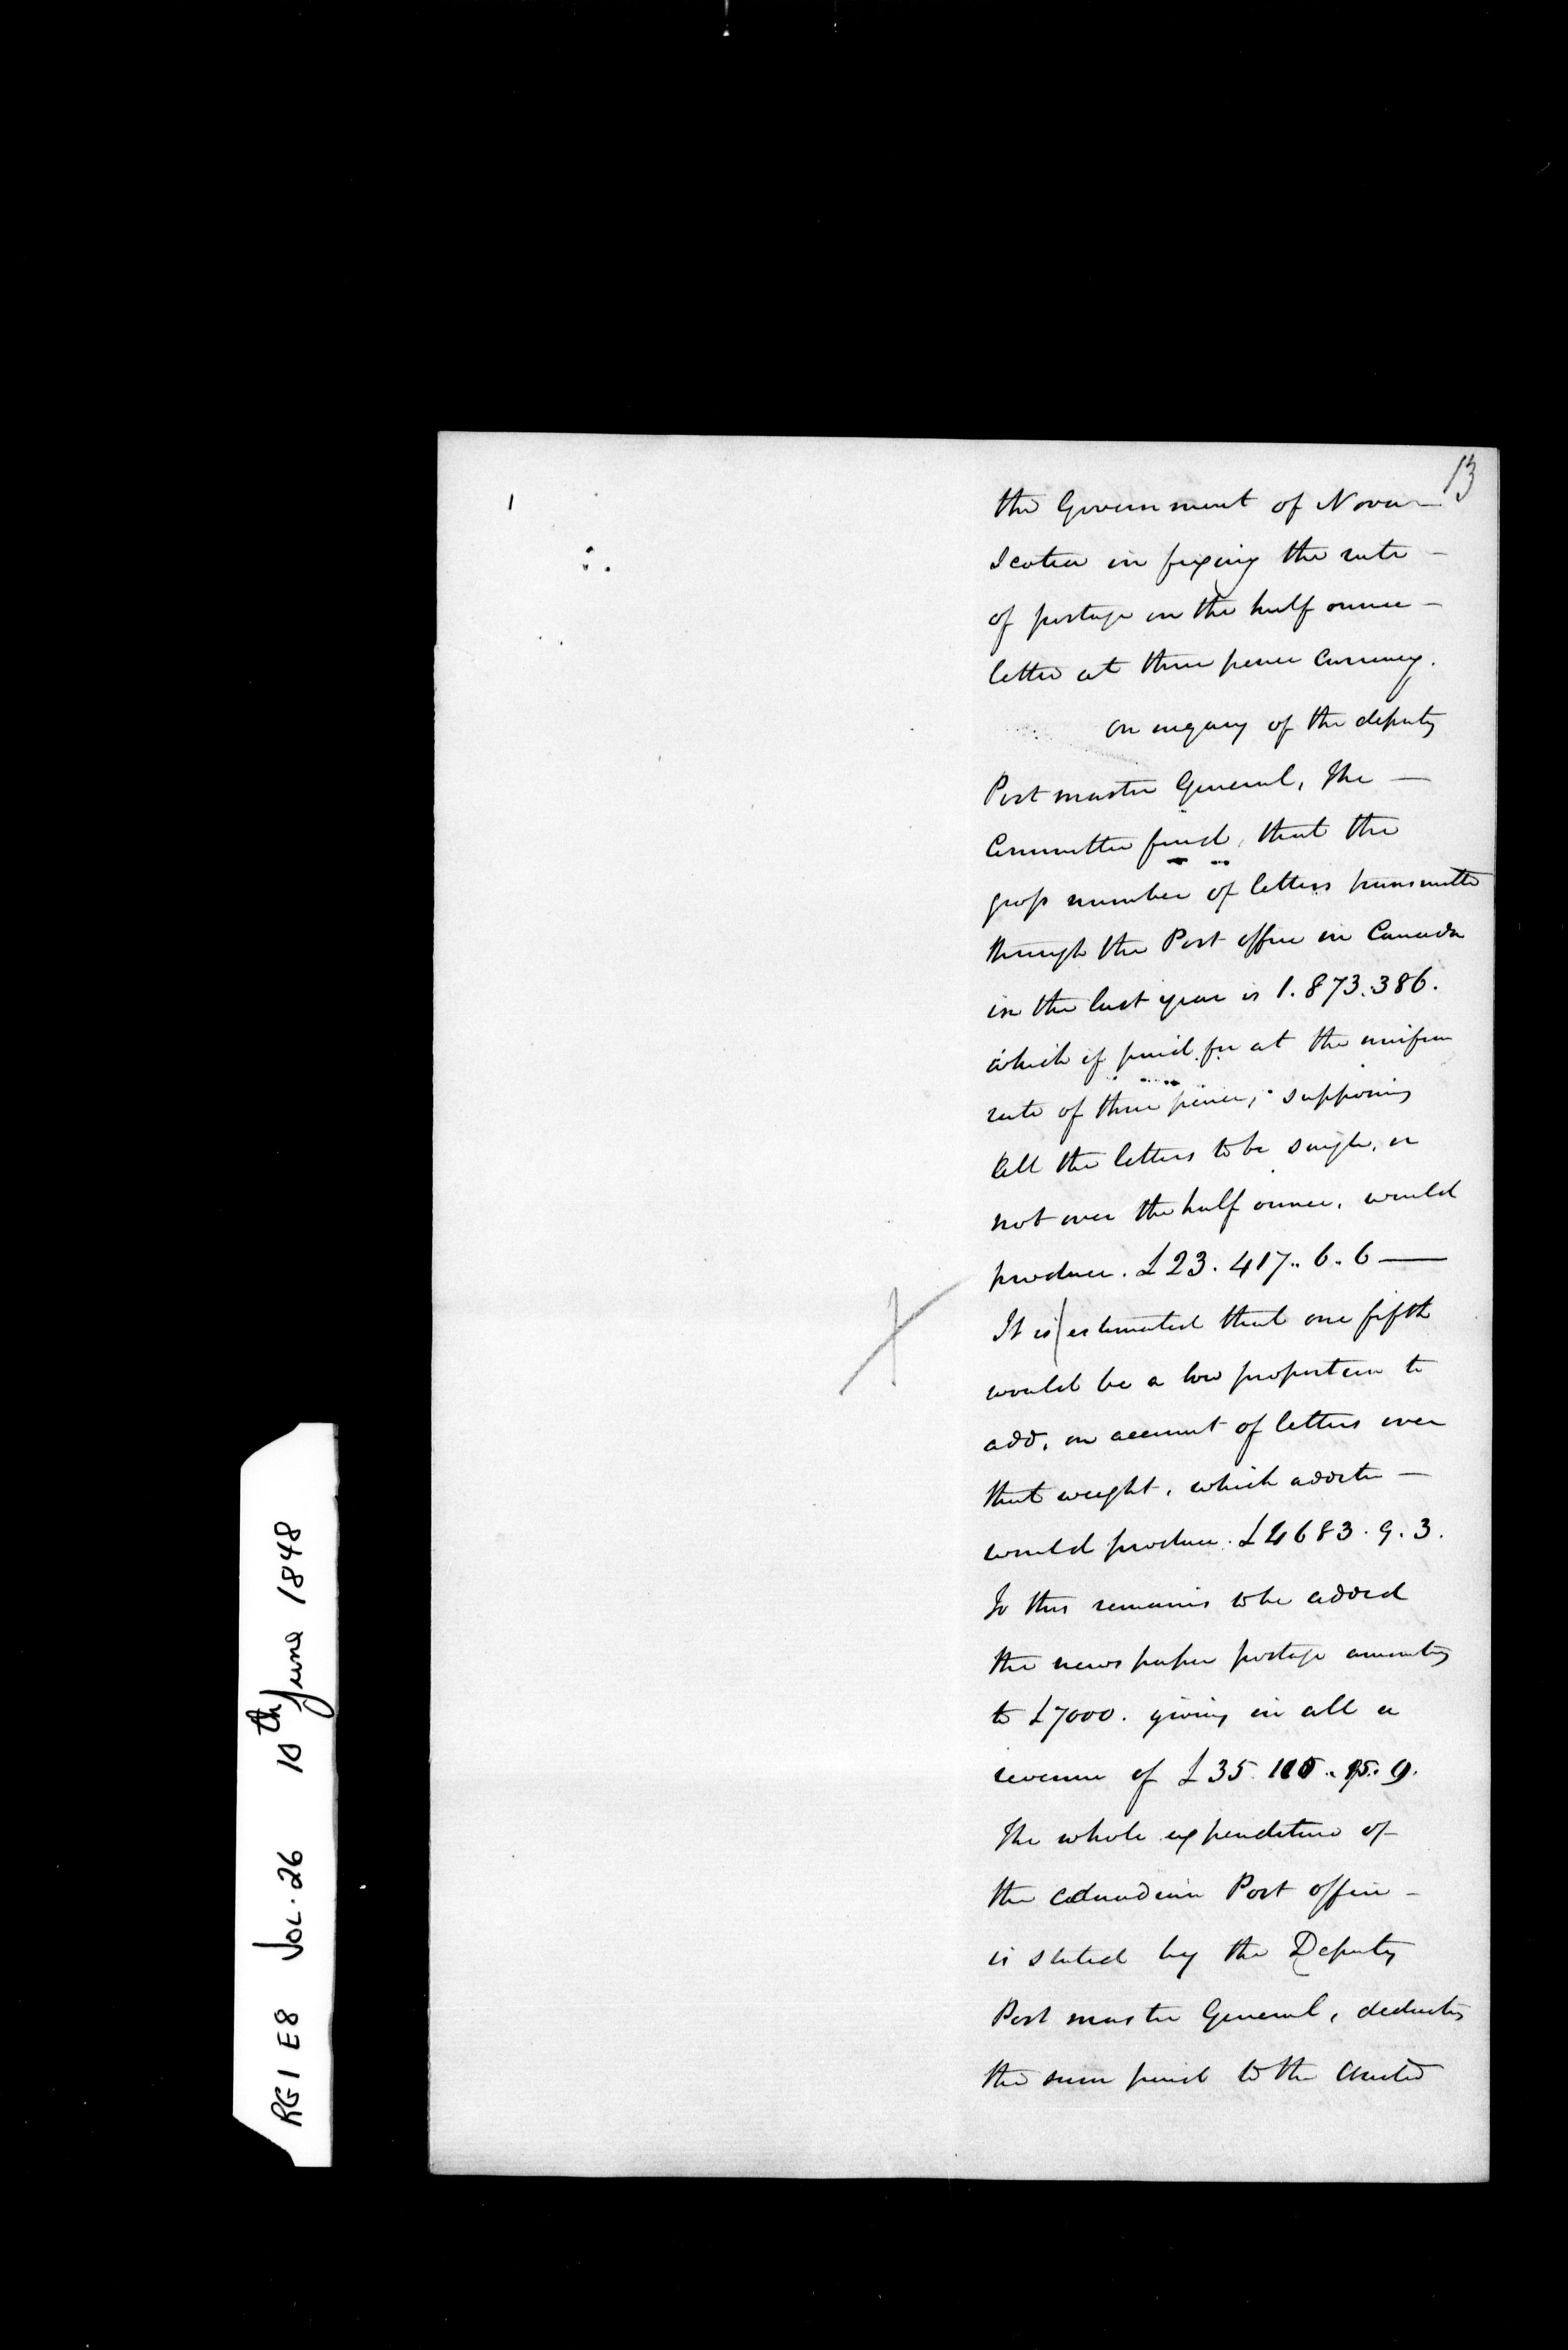 13
the Government of Nova —
Scotia in fixing the rate —
of postage on the half ounce —
letter at three pence Currency.
On inquiry of the deputy
Post master General, the —
Committee find, that the
gross number of letters transmitted
through the Post office in Canada
in the last year is 1.873.386.
which if paid for at the uniform
rate of three pence, supposing
all the letters to be single, or
not over the half ounce, would
produce. £23.417..6.6 —
It is estimated that one fifth
would be a low proportion to
add, on account of letters over
that weight, which addition —
would produce. £4683.9.3.
To this remains to be added
the news paper postage amounting
to £7000. giving in all a
revenue of £35.100..15..9.
The whole expenditure of
the Canadian Post office —
is stated by the Deputy
Post master General, deducting
the sum paid to the United
RG1 E8 VOL.26 10th June 1848